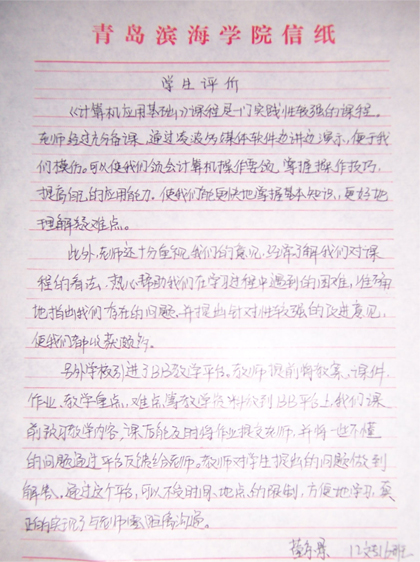 青岛滨海学院信纸
学生评价
《计算机应用基础》课程是一门实践性较强的课程。
老师经过充分备课，通过凌波多媒体软件边讲边演示，便于我
们模仿。可以使我们领会计算机操作要领，掌握操作技巧，
提高自己的应用能力。使我们能更快地掌握基本知识，更好地
理解疑难点。
此外，老师还十分重视我们的意见，经常了解我们对课
程的看法，热心帮助我们在学习过程中遇到的困难，准确
地指出我们存在的问题，并提出针对性较强的改进意见，
使我们都收获颇多。
另外学校引进了BB教学平台。教师提前将教案、课件、
作业、教学重点、难点等教学资料放到BB平台上，我们课
前预习教学内容，课后能及时将作业提交老师，并将一些不懂
的问题通过平台反馈给老师。教师对学生提出的问题做到
解答。通过这个平台，可以不受时间、地点的限制，方便地学习，真
正的实现了与老师零距离沟通。
12文秘班